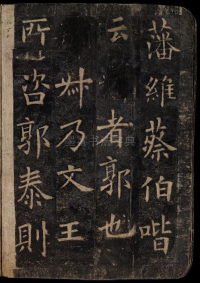 藩維蔡伯喈
云　者郭也
𦙍乃文王
所咨郭泰則